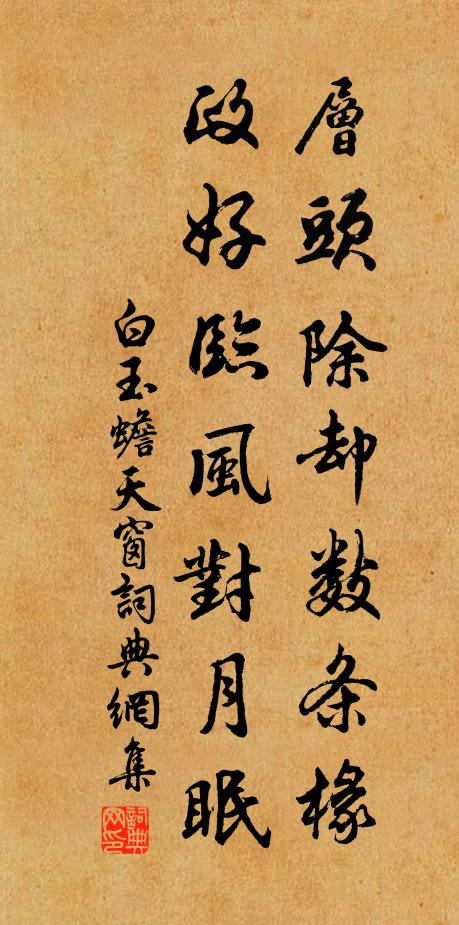 層頭除却數条椽
政好臨風對月眠
白玉蟾天窗詞典網集
詞典网印